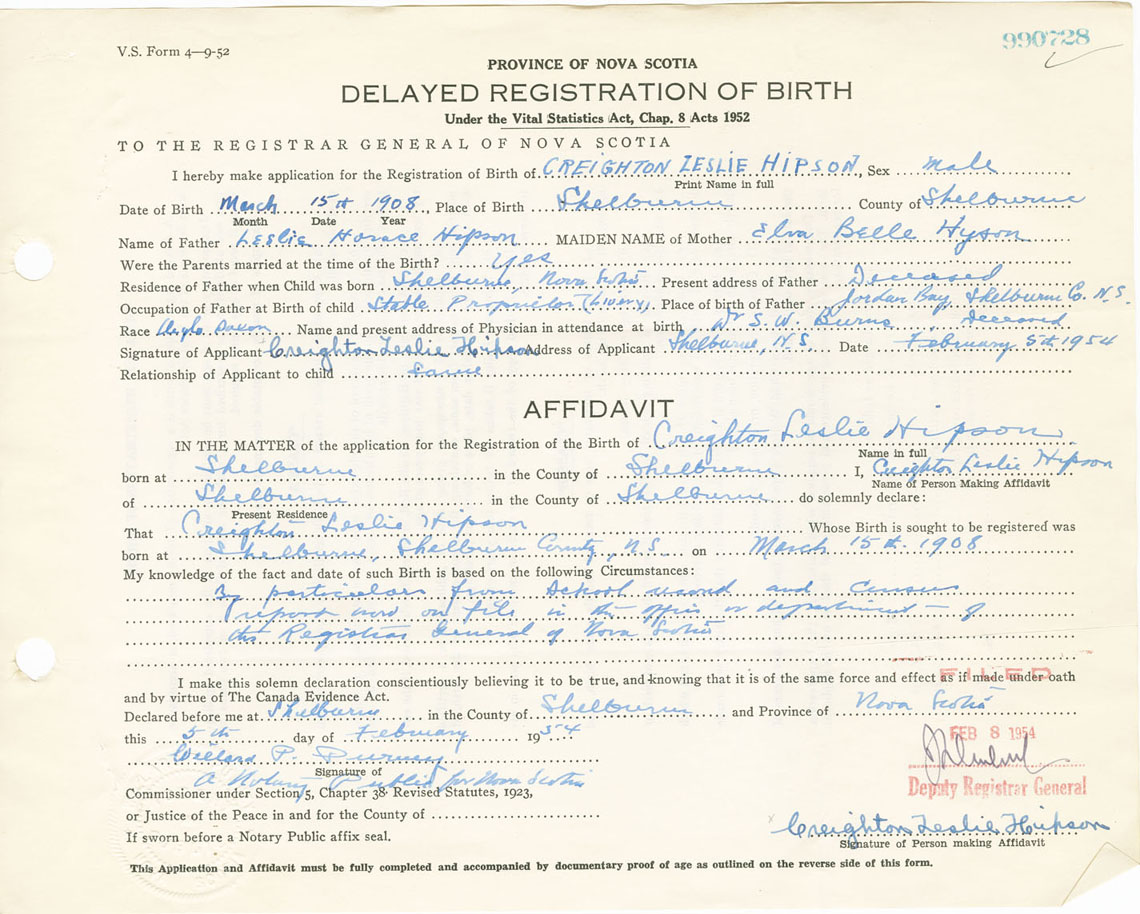 V.S. Form 4—9-52
990728
PROVINCE OF NOVA SCOTIA
DELAYED REGISTRATION OF BIRTH
Under the Vital Statistics Act, Chap. 8 Acts 1952
TO THE REGISTRAR GENERAL OF NOVA SCOTIA
I hereby make application for the Registration of Birth of CREIGHTON LESLIE HIPSON, Sex male
Print Name in full
Date of Birth March 15th 1908, Place of Birth Shelburne County of Shelburne
Month Date Year
Name of Father Leslie Horace Hipson MAIDEN NAME of Mother Elva Belle Hyson
Were the Parents married at the time of the Birth? Yes
Residence of Father when Child was born Shelburne, Nova Scotia Present address of Father Deceased
Occupation of Father at Birth of child Stable Proprietor (Livery) Place of birth of Father Jordan Bay, Shelburne Co. N.S.
Race Anglo Saxon Name and present address of Physician in attendance at birth Dr S. W. Burns, Deceased
Signature of Applicant Creighton Leslie Hipson Address of Applicant Shelburne, N.S. Date February 5th 1954
Relationship of Applicant to child Same
AFFIDAVIT
IN THE MATTER of the application for the Registration of the Birth of Creighton Leslie Hipson
Name in full
born at Shelburne in the County of Shelburne I, Creighton Leslie Hipson
Name of Person Making Affidavit
of Shelburne in the County of Shelburne do solemnly declare:
Present Residence
That Creighton Leslie Hipson Whose Birth is sought to be registered was
born at Shelburne, Shelburne County, N.S. on March 15th 1908
My knowledge of the fact and date of such Birth is based on the following Circumstances:
By particulars from School record and Census
report now on file in the office or department of
the Registrar General of Nova Scotia
I make this solemn declaration conscientiously believing it to be true, and knowing that it is of the same force and effect as if made under oath
FILED
and by virtue of The Canada Evidence Act.
Declared before me at Shelburne in the County of Shelburne and Province of Nova Scotia
this 5th day of February 1954
FEB 8 1954
Willard P. Purney
Signature of
A Notary Public for Nova Scotia
Deputy Registrar General
Commissioner under Section 5, Chapter 38 Revised Statutes, 1923,
or Justice of the Peace in and for the County of
Creighton Leslie Hipson
If sworn before a Notary Public affix seal.
Signature of Person making Affidavit
This Application and Affidavit must be fully completed and accompanied by documentary proof of age as outlined on the reverse side of this form.